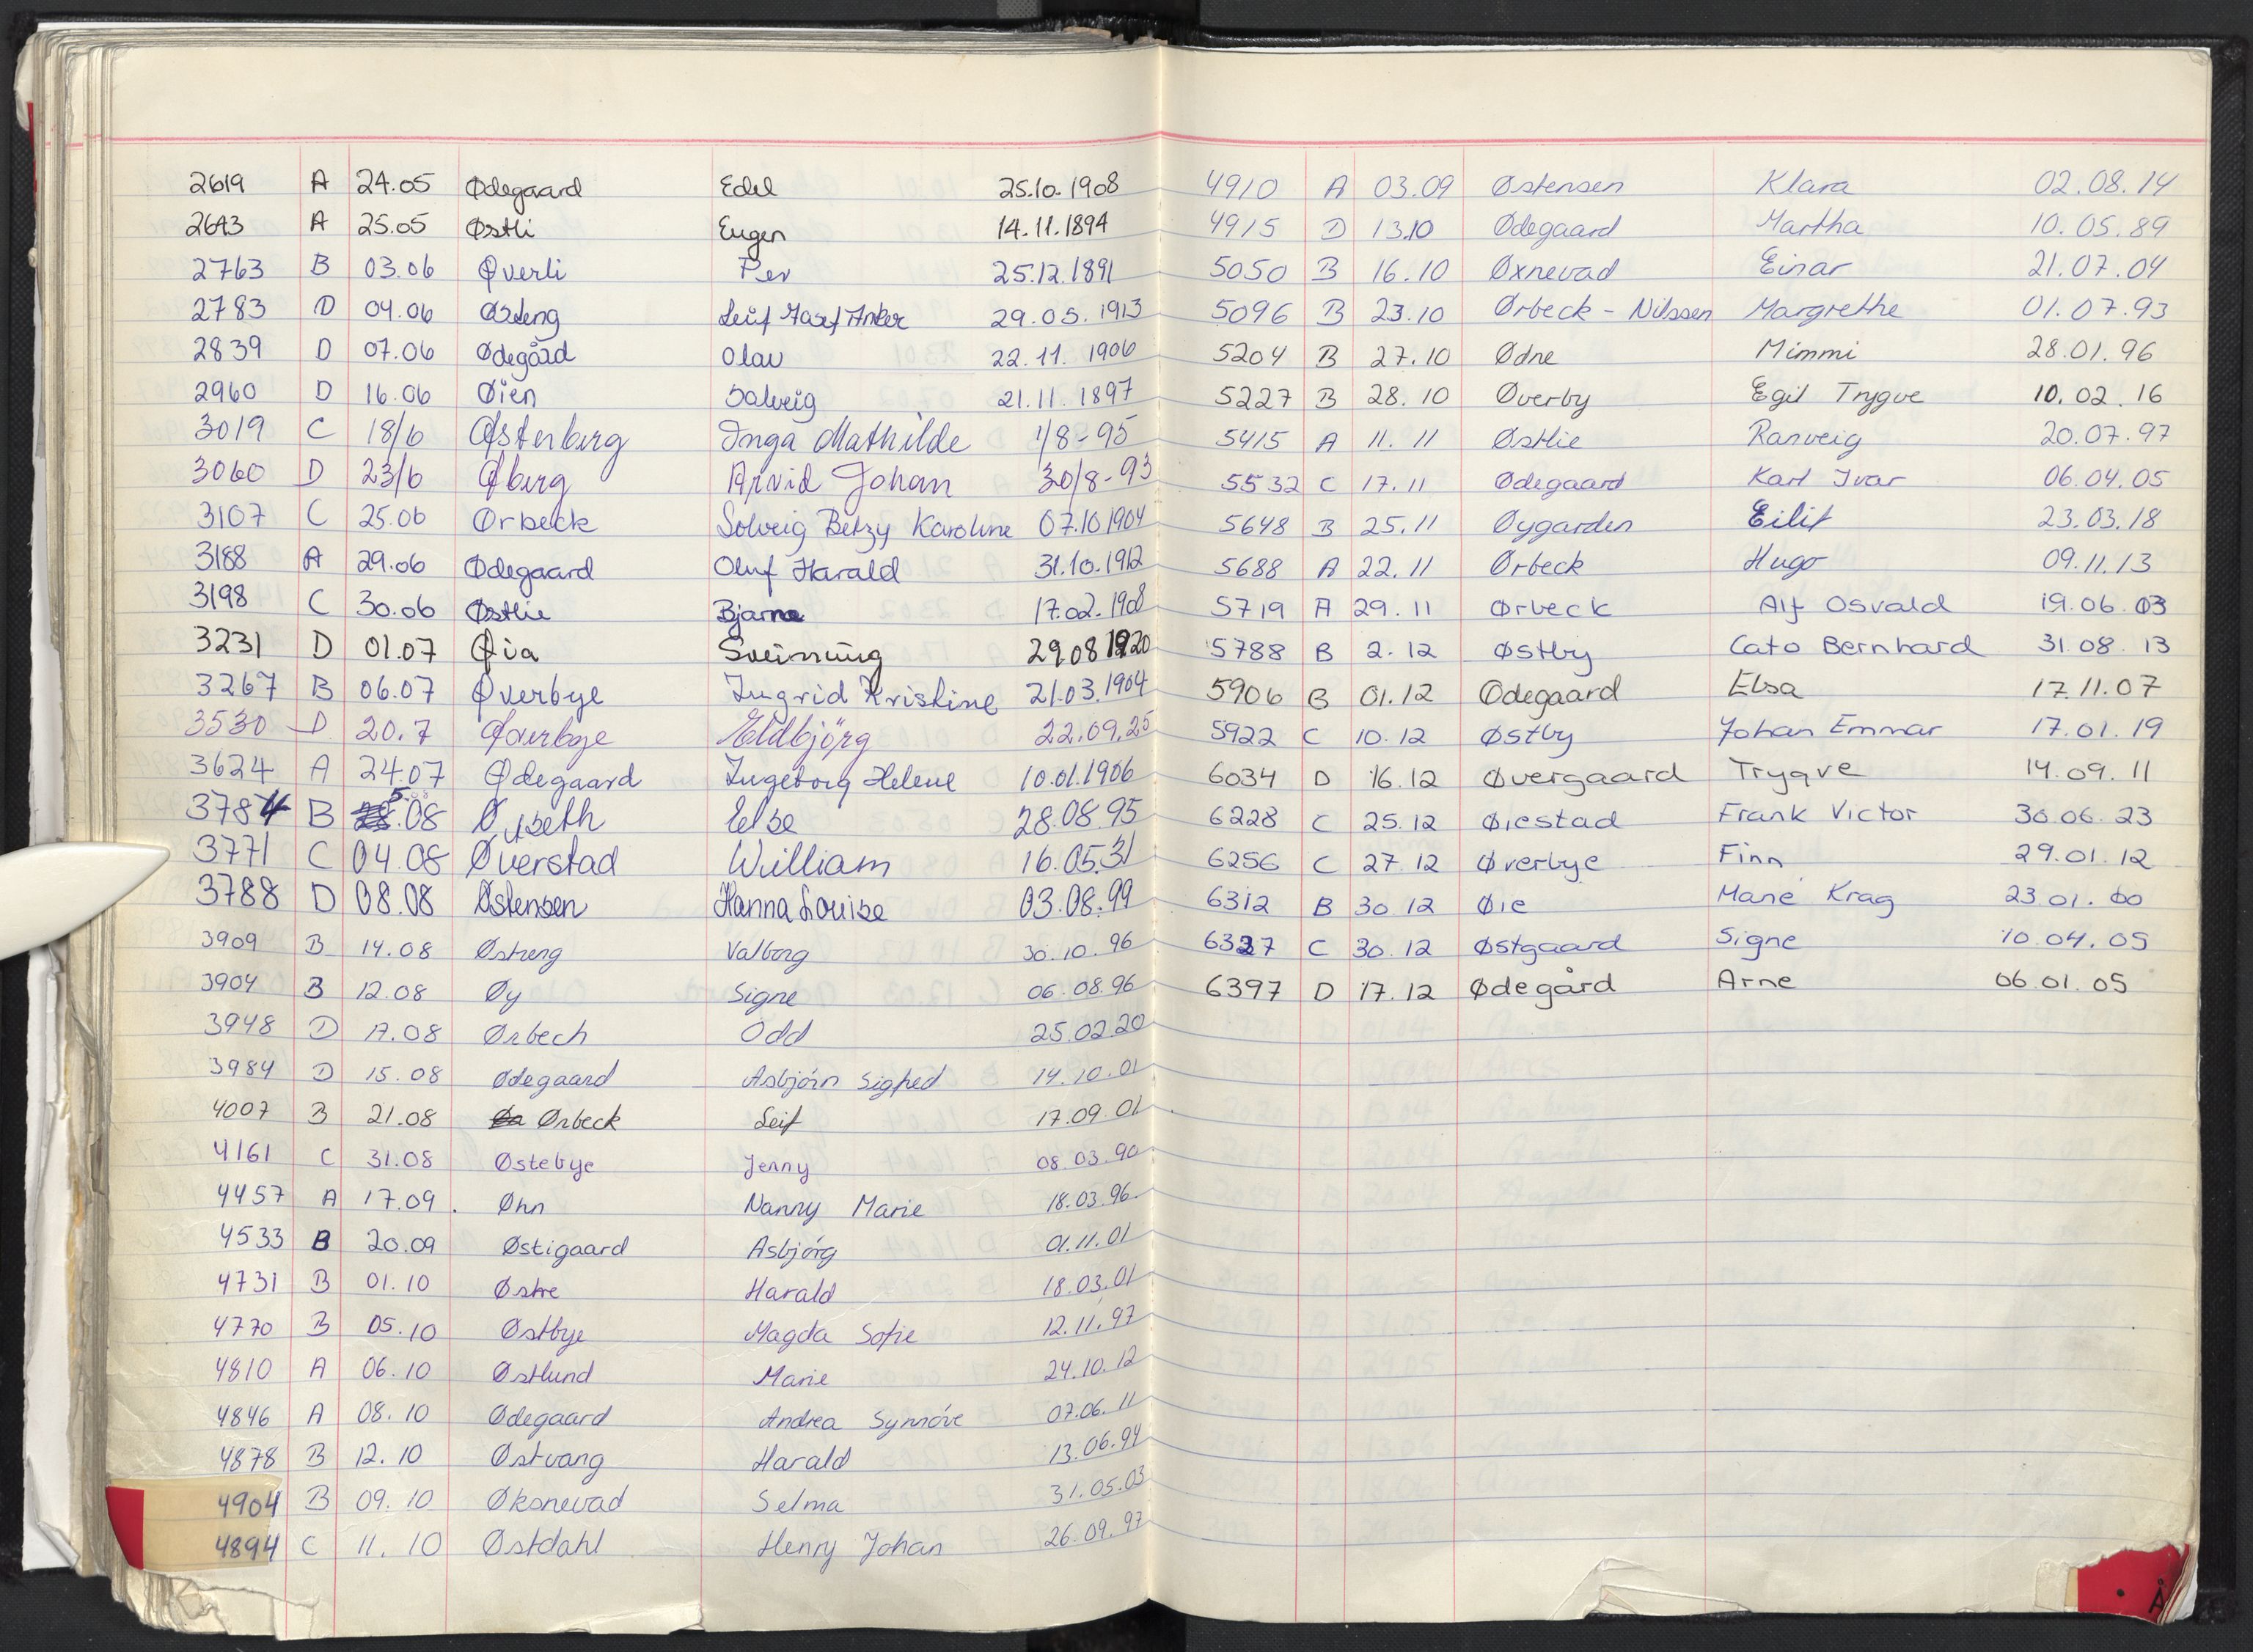 2619 A 24.05 Ødegaard Edel 25.10.1908
2643 A 25.05 Østli Eugen 14.11.1894
2763 B 03.06 Øverli Per 25.12.1891
2783 D 04.06 Østeng Leif Josef Anker 29.05.1913
2839 D 07.06 Ødegård Olav 22.11.1906
2960 D 16.06 Øien Solveig 21.11.1897
3019 C 18/6 Østerberg Inga Mathilde 1/8-95
3060 D 23/6 Øberg Arvid Johan 30/8-93
3107 C 25.06 Ørbeck Solveig Betzy Karoline 07.10 1904
3188 A 29.06 Ødegaard Oluf Harald 31.10.1912
3198 C 30.06 Østlie Bjarne 17.02.1908
3231 D 01.07 Øia Sveinung 29 08 1920
3267 B 06.07 Øverbye Ingrid Kristine 21.03.1904
3530 D 20.7 Øverbye Eldbjörg 22.09.25
3624 A 24.07 Ødegaard Ingeborg Helene 10.01.1906
3784 B 5.08 Øyseth Else 28.08.95
3771 C 04.08 Øverstad William 16.05.31
3788 D 08.08 Østensen Hanna Louise 03.08.99
3909 B 14.08 Østreng Valborg 30.10.96
3904 B 12.08 Øy Signe 06.08.96
3948 D 17.08 Ørbech Odd 25.02.20
3984 D 15.08 Ødegaard Asbjórn Sigfred 14.10.01
4007 B 21.08 Ørbeck Leif 17.09.01
4161 C 31.08 Østebye Jenny 08.03.90
4457 A 17.09. Øhn Nanny Marie 18.03.96
4533 B 20.09 Østigaard Asbjórg 01.11.01
4731 B 01.10 Østre Harald 18.03.01
4770 B 05.10 Østbye Magda Sofie 12.11.97
4810 A 06.10 Østlund Marie 24.10.12
4846 A 08.10 Ødegaard Andrea Synnóve 07.06.11
4878 B 12.10 Østvang Harald 13.06.94
4904 B 09.10 Øksnevad Selma 31.05.03
4894 C 11.10 Østdahl Henry Johan 26.09.97
4910 A 03.09 Østensen Klara 02.08.14
4915 D 13.10 Ødegaard Martha 10.05.89
5050 B 16.10 Øxnevad Einar 21.07.04
5096 B 23.10 Ørbeck - Nilssen Margrethe 01.07.93
5204 B 27.10 Ødne Mimmi 28.01.96
5227 B 28.10 Øverby Egil Trygve 10.02.16
5415 A 11.11 Østlie Ranveig 20.07.97
5532 C 17.11 Ødegaard Karl Ivar 06.04.05
5648 B 25.11 Øygarden Eilif 23.03.18
5688 A 22.11 Ørbeck Hugo 09.11.13
5719 A 29.11 Ørbeck Alf Osvald 19.06.03
5788 B 2.12 Østby Cato Bernhard 31.08.13
5906 B 01.12 Ødegaard Elsa 17.11.07
5922 C 10.12 Østby Johan Emmar 17.01.19
6034 D 16.12 Øvergaard Trygve 14.09.11
6228 C 25.12 Øiestad Frank Victor 30.06.23
6256 C 27.12 Øverbye Finn 29.01.12
6312 B 30.12 Øie Marie Krag 23.01.00
6327 C 30.12 Østgaard Signe 10.04.05
6397 D 17.12 Ødegård Arne 06.01.05
Å